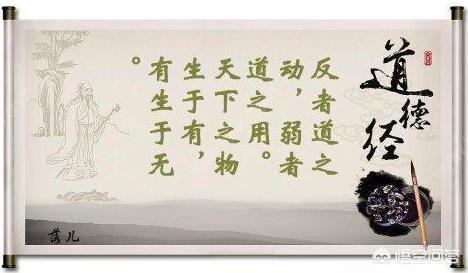 道德经
反者道之
动，弱者
道之用。
天下之物
生于有，
有生于无
。
悟空问答